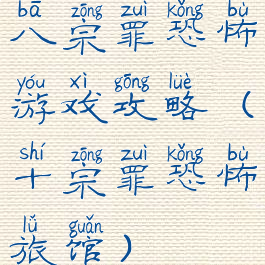 bā zōng zuì kǒng bù
八宗罪恐怖
yóu xì gōng lüè
游戏攻略（
shí zōng zuì kǒng bù
十宗罪恐怖
lǚ guǎn
旅馆）